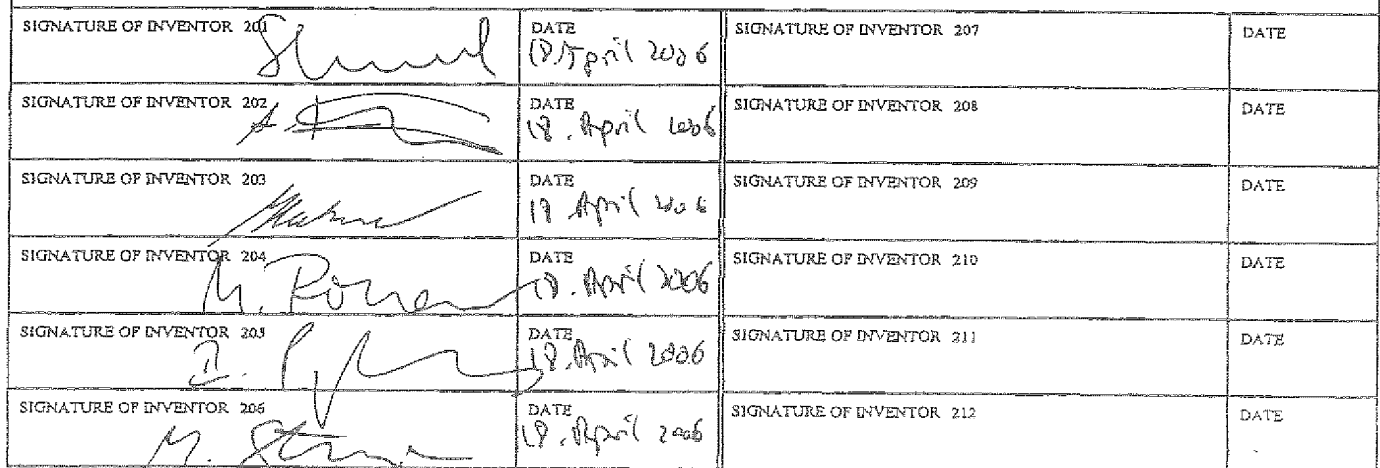 SIGNATURE OF INVENTOR 201 DATE SIGNATURE OF INVENTOR 207 DATE
18. April 2006
SIGNATURE OF INVENTOR 202 DATE SIGNATURE OF INVENTOR 208 DATE
18. April 2006
SIGNATURE OF INVENTOR 203 DATE SIGNATURE OF INVENTOR 209 DATE
18 April 2006
SIGNATURE OF INVENTOR 204 DATE SIGNATURE OF INVENTOR 210 DATE
M. 18. April 2006
SIGNATURE OF INVENTOR 205 DATE SIGNATURE OF INVENTOR 211 DATE
18. April 2006
SIGNATURE OF INVENTOR 206 DATE SIGNATURE OF INVENTOR 212 DATE
M. 18. April 2006